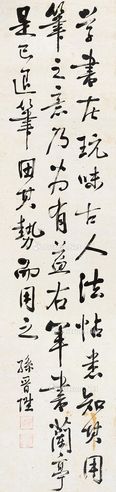 学书在玩味古人法帖悉知其用
笔之意乃为有益右军书兰亭
是已退笔因其势而用之
孙晋陞